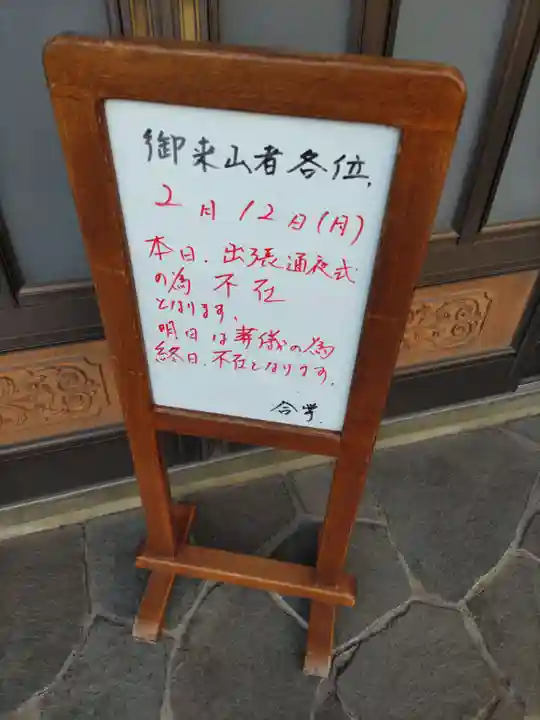 御来山者各位.
2月12日(月)
本日.出張通夜式
の為 不在
となります.
明日は葬儀の為
終日.不在となります.
合掌.